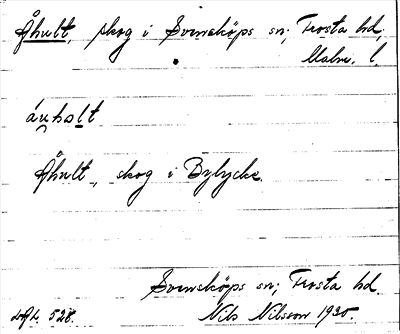 Åhult, skog i Svensköps sn; Frosta hd.
Malm. l.
áu̯hoḷt
Åhult, skog i Bylycke
Svensköps sn; Frosta hd.
528. Nils Nilsson 1930.